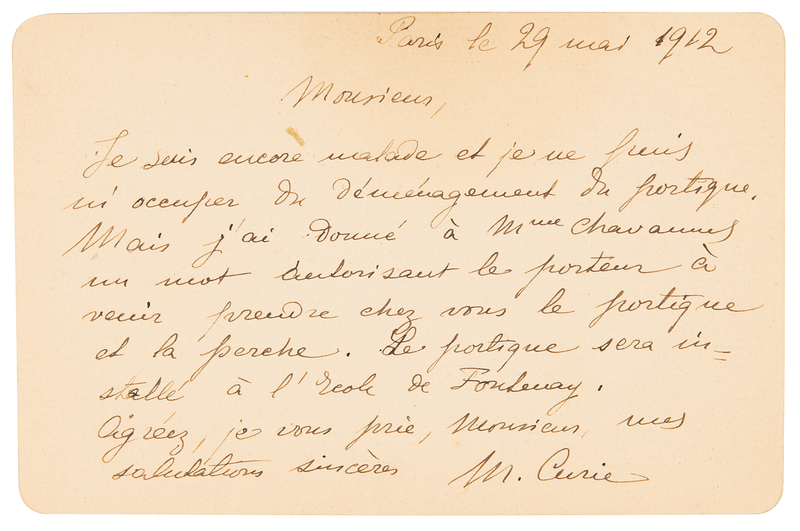 Paris le 29 mai 1912
Monsieur,
Je suis encore malade et je ne puis
m'occuper du déménagement du portique.
Mais j'ai donné à Mme Chavannes
un mot autorisant le porteur à
venir prendre chez vous le portique
et la perche. Le portique sera in=
stallé à l'Ecole de Fontenay.
Agréez, je vous prie, Monsieur, mes
salutations sincères M. Curie